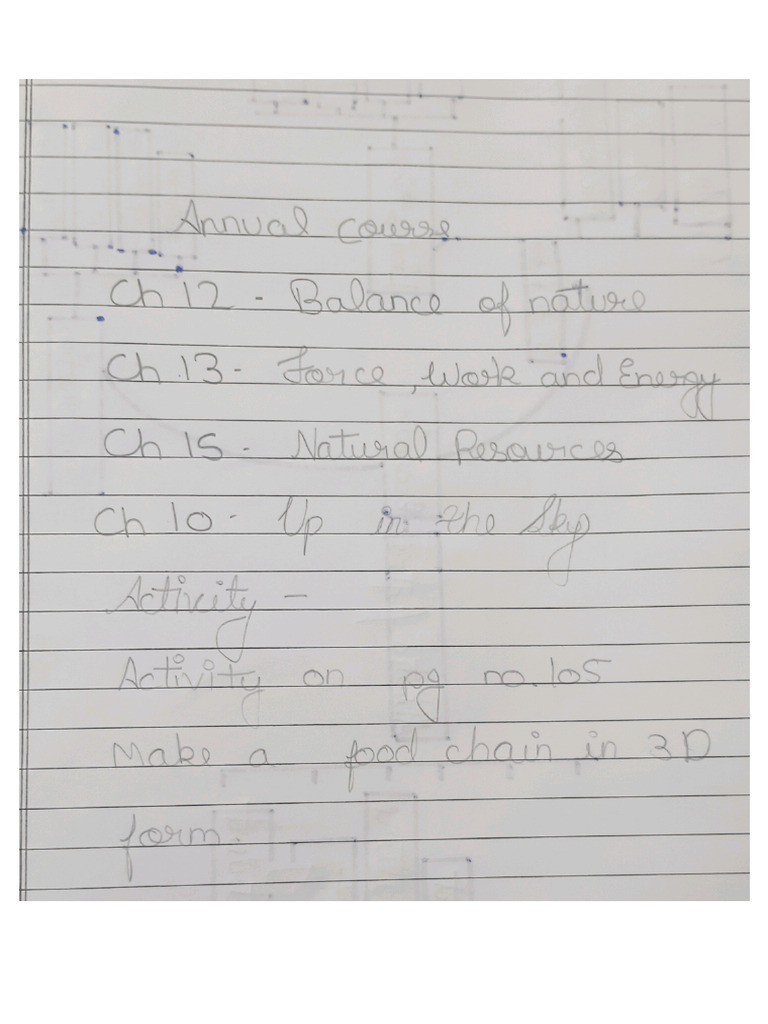 Annual Course.
Ch 12 - Balance of nature
Ch.13 - Force, Work and Energy
Ch 15 - Natural Resources
Ch 10 - Up in the Sky
Activity -
Activity on pg no. 105
Make a food chain in 3D
form.